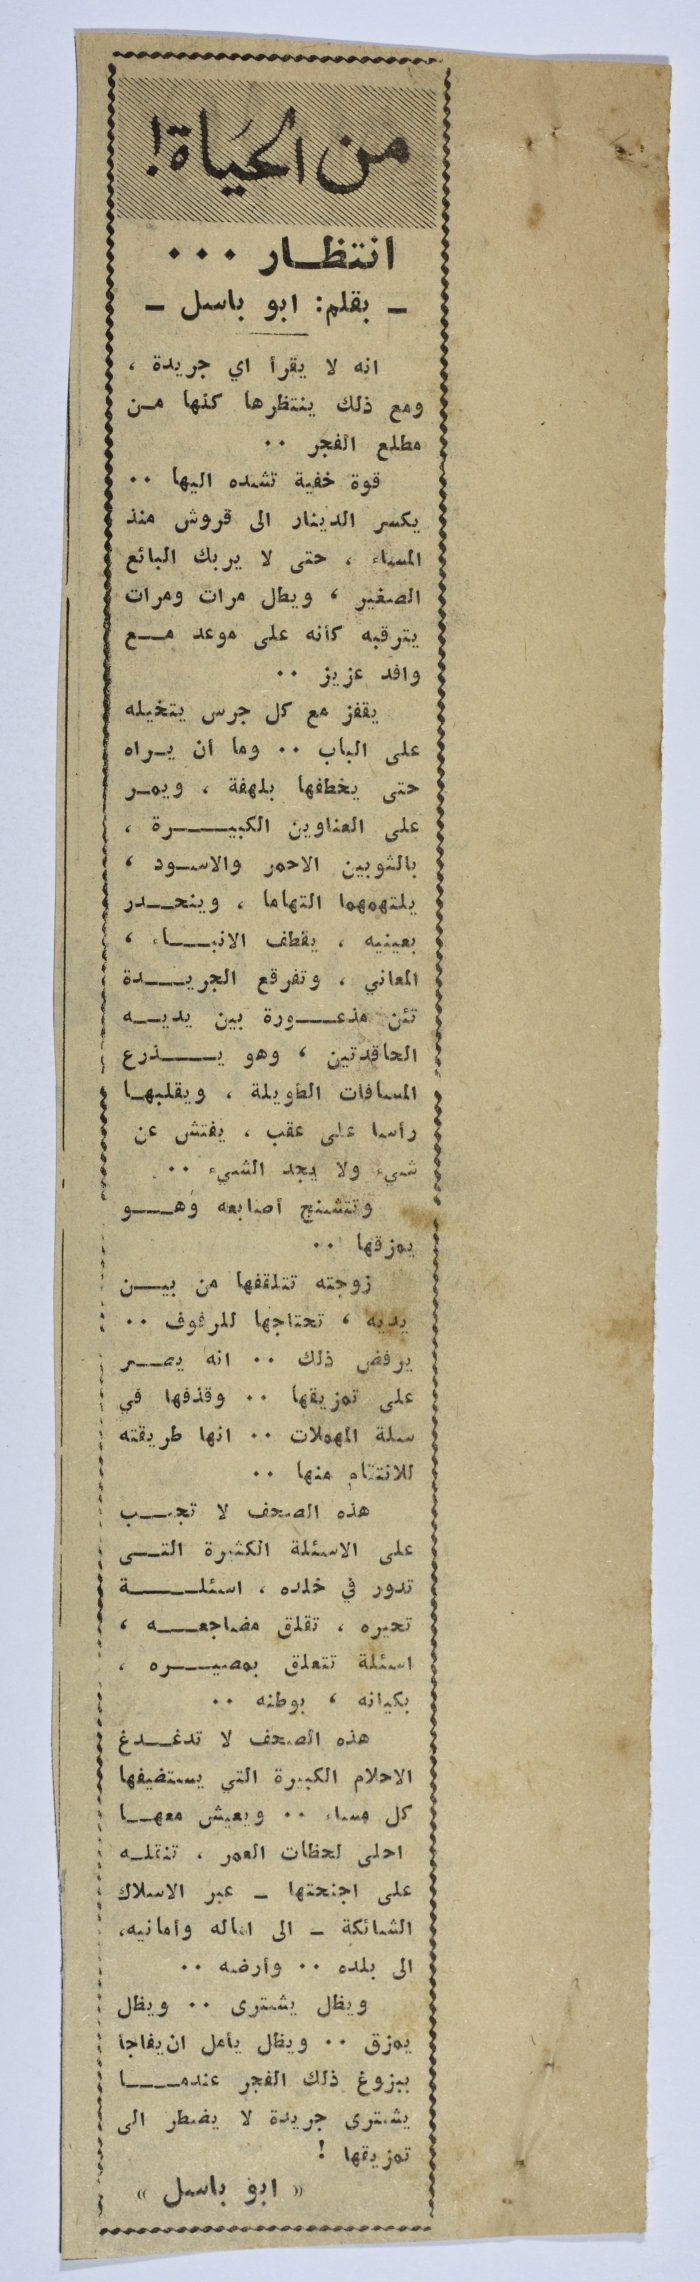 من الحياة!
انتظار ...
ـ بقلم: ابو باسل ـ
انه لا يقرأ اي جريدة ،
ومع ذلك ينتظرها كلها من
مطلع الفجر ..
قوة خفية تشده اليها ..
يكسر الدينار الى قروش منذ
المساء ، حتى لا يربك البائع
الصغير ، ويطل مرات ومرات
يترقبه كأنه على موعد مع
وافد عزيز ..
يقفز مع كل جرس يتخيله
على الباب .. وما أن يراه
حتى يخطفها بلهفة ، ويمر
على العناوين الكبيرة ،
بالثوبين الاحمر والاسود ،
يلتهمهما التهاما ، وينحدر
بعينيه ، يقطف الانباء ،
المعاني ، وتفرقع الجريدة
تئن مذعورة بين يديه
الحاقدتين ، وهو يذرع
المسافات الطويلة ، ويقلبها
رأسا على عقب ، يفتش عن
شيء ولا يجد الشيء ..
وتتشنج أصابعه وهو
يمزقها ..
زوجته تتلقفها من بين
يديه ، تحتاجها للرفوف ..
يرفض ذلك .. انه يصر
على تمزيقها .. وقذفها في
سلة المهملات .. انها طريقته
للانتقام منها ..
هذه الصحف لا تجيب
على الاسئلة الكثيرة التي
تدور في خلده ، اسئلة
تحيره ، تقلق مضاجعه ،
اسئلة تتعلق بمصيره ،
بكيانه ، بوطنه ..
هذه الصحف لا تدغدغ
الاحلام الكبيرة التي يستضيفها
كل مساء .. ويعيش معها
احلى لحظات العمر ، تنقله
على اجنحتها ـ عبر الاسلاك
الشائكة ـ الى اماله وأمانيه،
الى بلده .. وأرضه ..
ويظل يشترى .. ويظل
يمزق .. ويظل يأمل ان يفاجأ
ببزوغ ذلك الفجر عندما
يشترى جريدة لا يضطر الى
تمزيقها !
« ابو باسل »